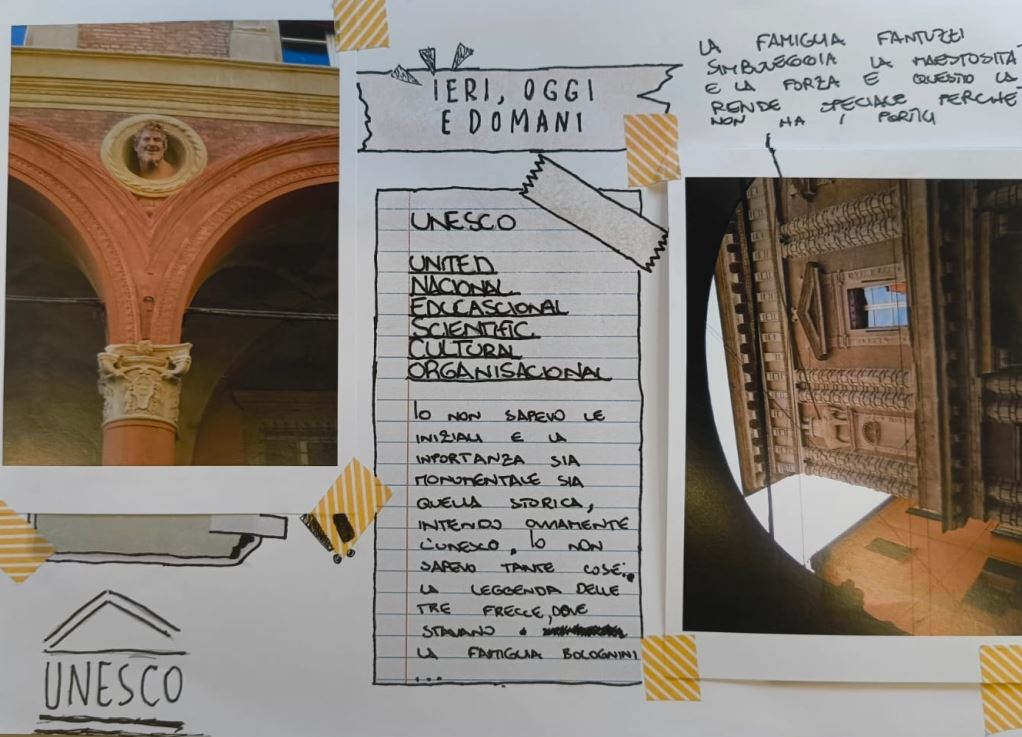 IERI, OGGI
E DOMANI
LA FAMIGLIA FANTUZZI
SIMBOLEGGIA LA MAESTOSITÀ
E LA FORZA E QUESTO LA
RENDE SPECIALE PERCHÉ
NON HA I PORTICI
UNESCO
UNITED
NACIONAL
EDUCASCIONAL
SCIENTIFIC
CULTURAL
ORGANISACIONAL
IO NON SAPEVO LE
INIZIALI E LA
INPORTANZA SIA
MONUMENTALE SIA
QUELLA STORICA,
INTENDO OVVIAMENTE
L'UNESCO, IO NON
SAPEVO TANTE COSE:
LA LEGGENDA DELLE
TRE FRECCE, DOVE
STAVANO
LA FAMIGLIA BOLOGNINI
...
UNESCO